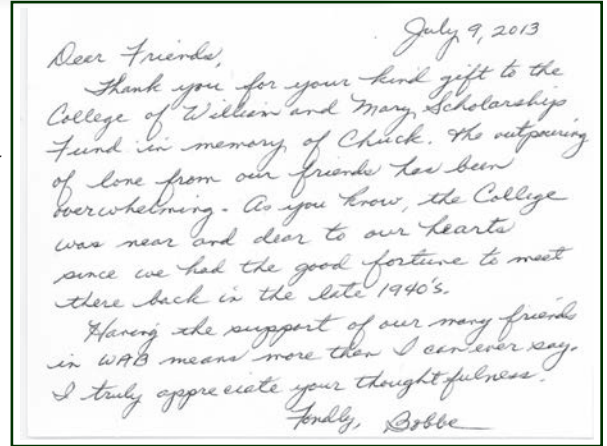 July 9, 2013
Dear Friends,
Thank you for your kind gift to the
College of William and Mary Scholarship
Fund in memory of Chuck. The outpouring
of love from our friends has been
overwhelming. As you know, the College
was near and dear to our hearts
since we had the good fortune to meet
there back in the late 1940's.
Having the support of our many friends
in WAB means more than I can ever say.
I truly appreciate your thoughtfulness.
Fondly, Bobbe